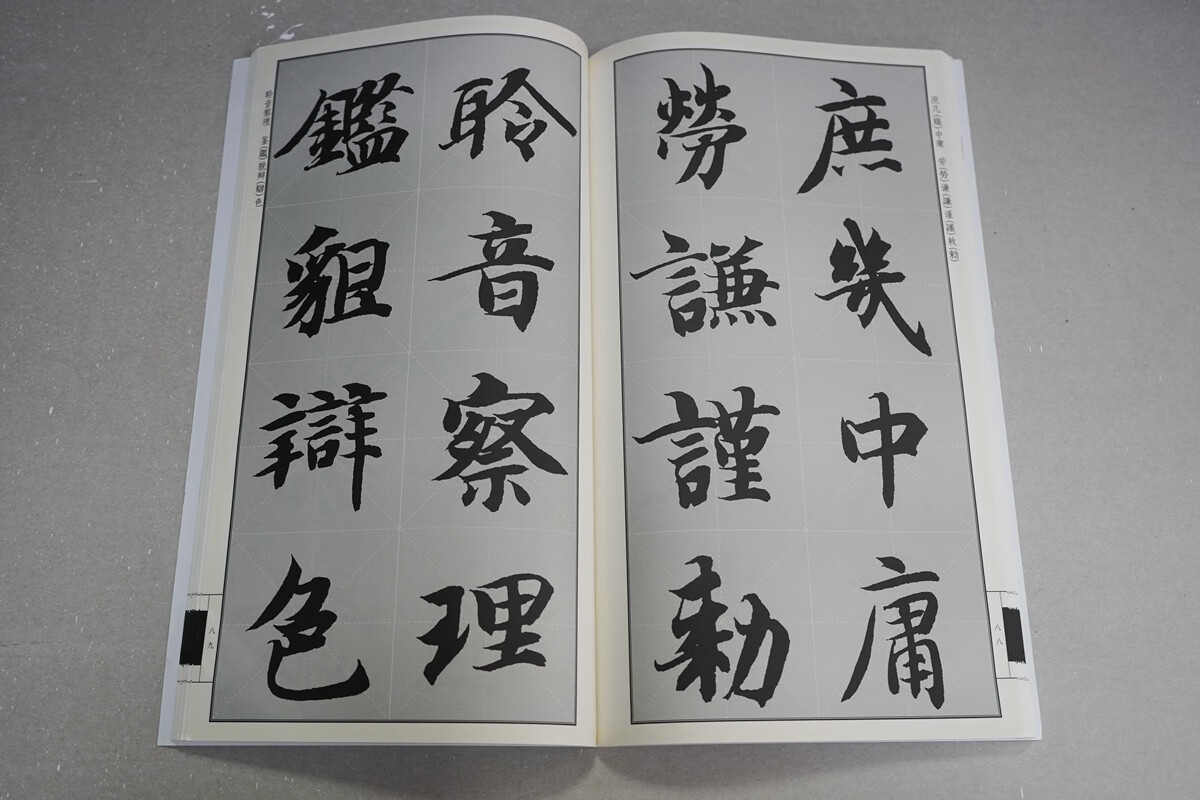 庶几(幾)中庸　劳(勞)谦(謙)谨(謹)敕(勑)
庶幾中庸
勞謙謹勑
八八
聆音察理
鑑貌辯色
聆音察理　鉴(鑑)貌辩(辯)色
八九